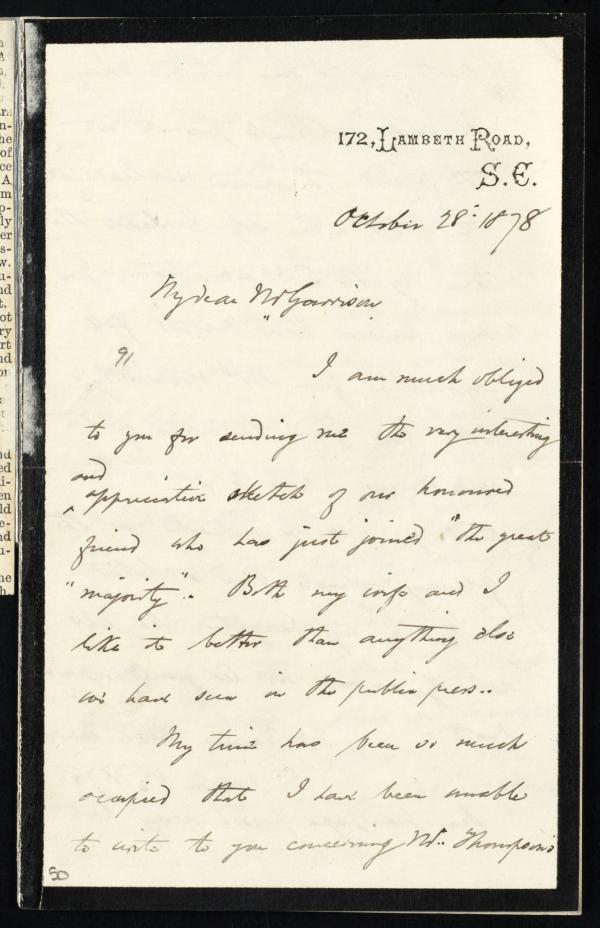 172, LAMBETH ROAD,
S.E.
October 28th 1878
My dear Mr Garrison
91
I am much obliged
to you for sending me the very interesting
and
^ appreciative sketch of our honoured
friend who has just joined "the great
"majority". Both my wife and I
like it better than anything else
we have seen in the public press.
My time has been so much
occupied that I have been unable
to write to you concerning Mr. Thompson's
50